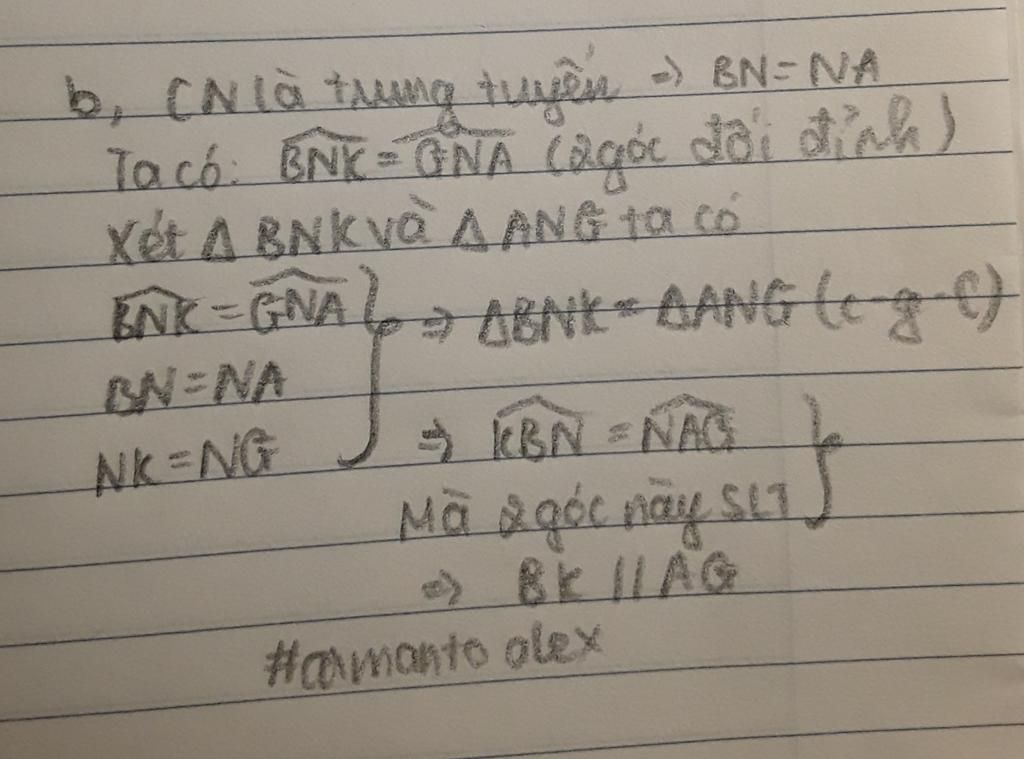 b, CN là trung tuyến => BN = NA
Ta có: BNK = GNA (2 góc đối đỉnh)
Xét Δ BNK và Δ ANG ta có
BNK = GNA } => ΔBNK = ΔANG (c-g-c)
BN = NA
NK = NG
=> KBN = NAG
Mà 2 góc này SLT
=> BK // AG
#armanto alex